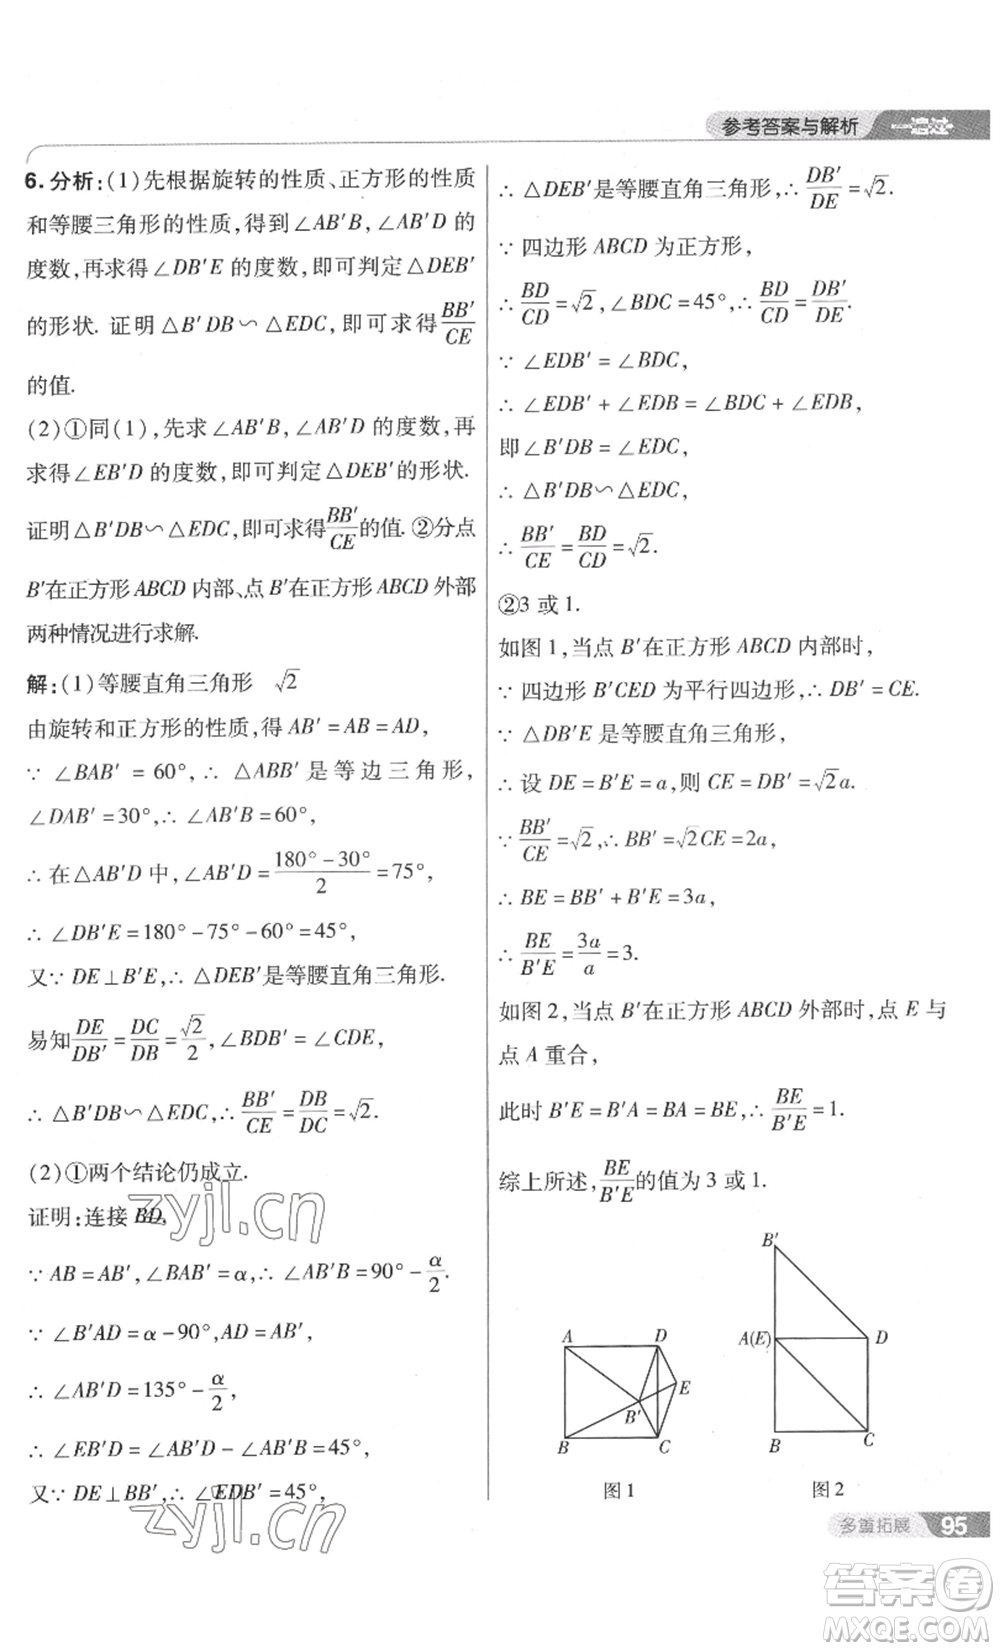 参考答案与解析 一遍过
6.分析:(1)先根据旋转的性质、正方形的性质
和等腰三角形的性质,得到∠AB′B,∠AB′D的
度数,再求得∠DB′E的度数,即可判定△DEB′
的形状. 证明△B′DB∽△EDC,即可求得BB′/CE
的值.
(2)①同(1),先求∠AB′B,∠AB′D的度数,再
求得∠EB′D的度数,即可判定△DEB′的形状.
证明△B′DB∽△EDC,即可求得BB′/CE的值.②分点
B′在正方形ABCD内部、点B′在正方形ABCD外部
两种情况进行求解.
解:(1)等腰直角三角形 √2
由旋转和正方形的性质,得AB′=AB=AD,
∵∠BAB′=60°,∴△ABB′是等边三角形,
∠DAB′=30°,∴∠AB′B=60°,
∴在△AB′D中,∠AB′D=(180°-30°)/2=75°,
∴∠DB′E=180°-75°-60°=45°,
又∵DE⊥B′E,∴△DEB′是等腰直角三角形.
易知DE/DB′=DC/DB=√2/2,∠BDB′=∠CDE,
∴△B′DB∽△EDC,∴BB′/CE=DB/DC=√2.
(2)①两个结论仍成立.
证明:连接BD,
∵AB=AB′,∠BAB′=α,∴∠AB′B=90°-α/2.
∵∠B′AD=α-90°,AD=AB′,
∴∠AB′D=135°-α/2,
∴∠EB′D=∠AB′D-∠AB′B=45°,
又∵DE⊥BB′,∴∠EDB′=45°,
∴△DEB′是等腰直角三角形,∴DB′/DE=√2.
∵四边形ABCD为正方形,
∴BD/CD=√2,∠BDC=45°,∴BD/CD=DB′/DE.
∵∠EDB′=∠BDC,
∴∠EDB′+∠EDB=∠BDC+∠EDB,
即∠B′DB=∠EDC,
∴△B′DB∽△EDC,
∴BB′/CE=BD/CD=√2.
②3或1.
如图1,当点B′在正方形ABCD内部时,
∵四边形B′CED为平行四边形,∴DB′=CE.
∵△DB′E是等腰直角三角形,
∴设DE=B′E=a,则CE=DB′=√2a.
∵BB′/CE=√2,∴BB′=√2CE=2a,
∴BE=BB′+B′E=3a,
∴BE/B′E=3a/a=3.
如图2,当点B′在正方形ABCD外部时,点E与
点A重合,
此时B′E=B′A=BA=BE,∴BE/B′E=1.
综上所述,BE/B′E的值为3或1.
A D E B′ B C
图1
B′ A(E) D B C
图2
多重拓展 95
zyjl.cn
zyjl.cn
答案圈
MXQE.COM